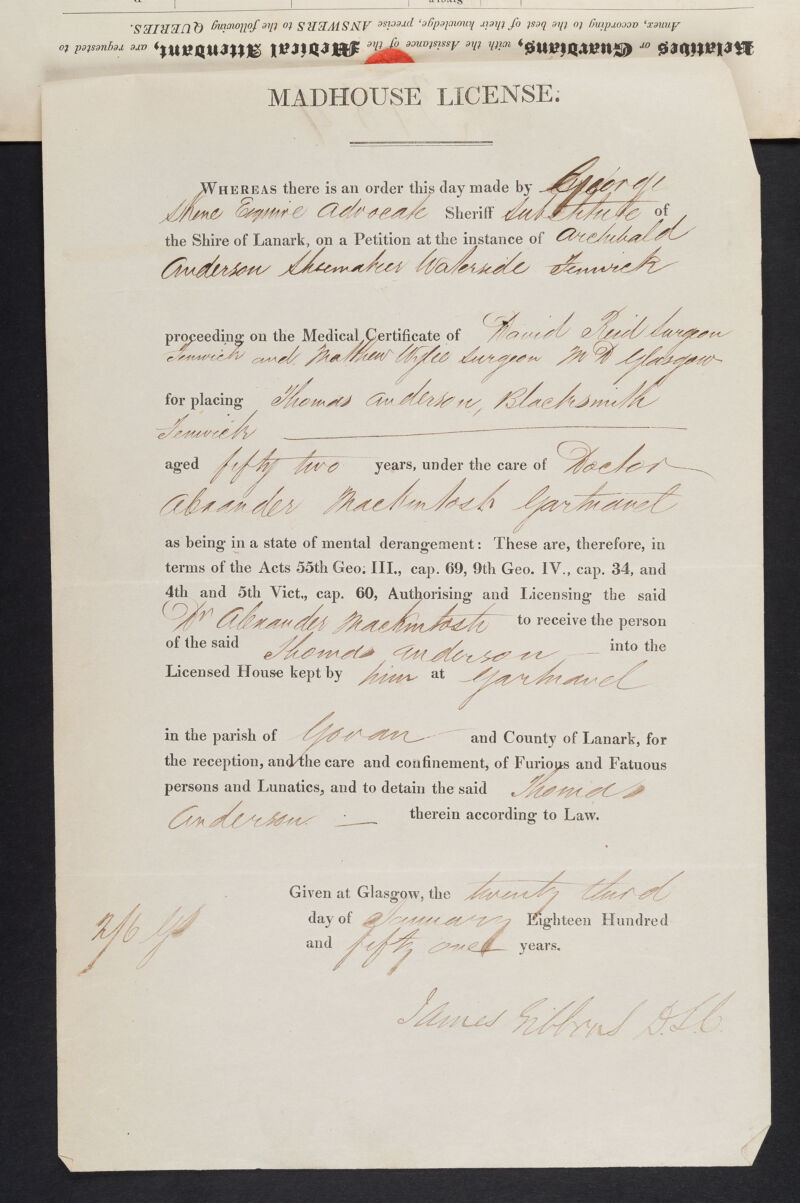 Relatives or Guardians, with the Assistance of the Medical Attendant, are requested to
Annex, according to the best of their knowledge, precise ANSWERS to the following QUERIES.
MADHOUSE LICENSE.
WHEREAS there is an order this day made by George
Skene Esquire Advocate Sheriff Substitute of
the Shire of Lanark, on a Petition at the instance of Archibald
Anderson Shoemaker Waterside Fenwick
proceeding on the Medical Certificate of David Reid Surgeon
Fenwick and Matthew Wylie Surgeon MD Glasgow
for placing Thomas Anderson, Blacksmith
Fenwick
aged fifty two years, under the care of Doctor
Alexander Mackintosh Gartnavel
as being in a state of mental derangement: These are, therefore, in
terms of the Acts 55th Geo. III., cap. 69, 9th Geo. IV., cap. 34, and
4th and 5th Vict., cap. 60, Authorising and Licensing the said
Dr Alexander Mackintosh to receive the person
of the said Thomas Anderson into the
Licensed House kept by him at Gartnavel
in the parish of Govan and County of Lanark, for
the reception, and the care and confinement, of Furious and Fatuous
persons and Lunatics, and to detain the said Thomas
Anderson therein according to Law.
Given at Glasgow, the twenty third
day of January Eighteen Hundred
and fifty one years.
2/6
James Gibbons D.S.C.